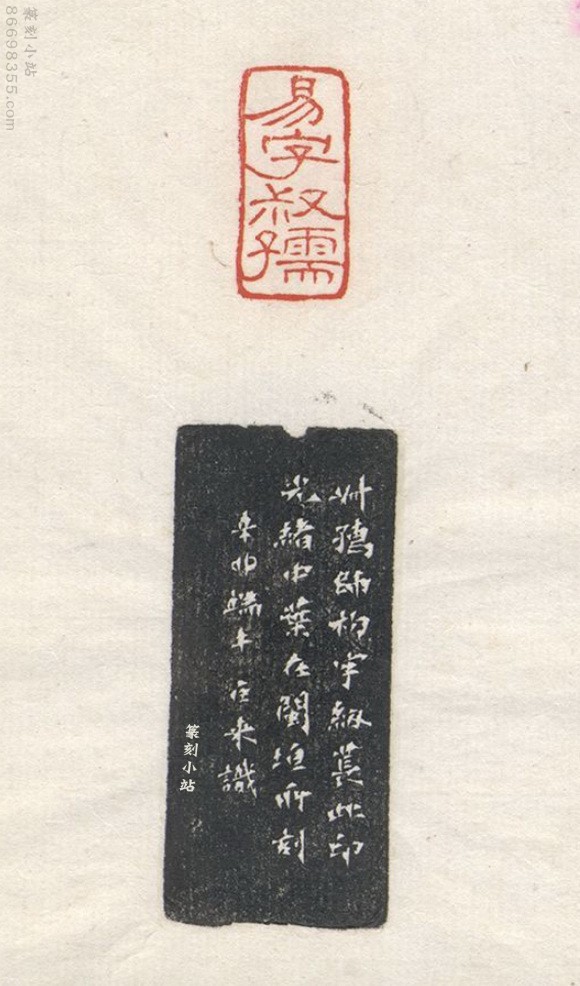 篆刻小站
86698355.com
易字叔孺
叔孺師初字紉萇此印
光緒中葉在閩垣所刻
辛卯端午巨來識
篆刻小站